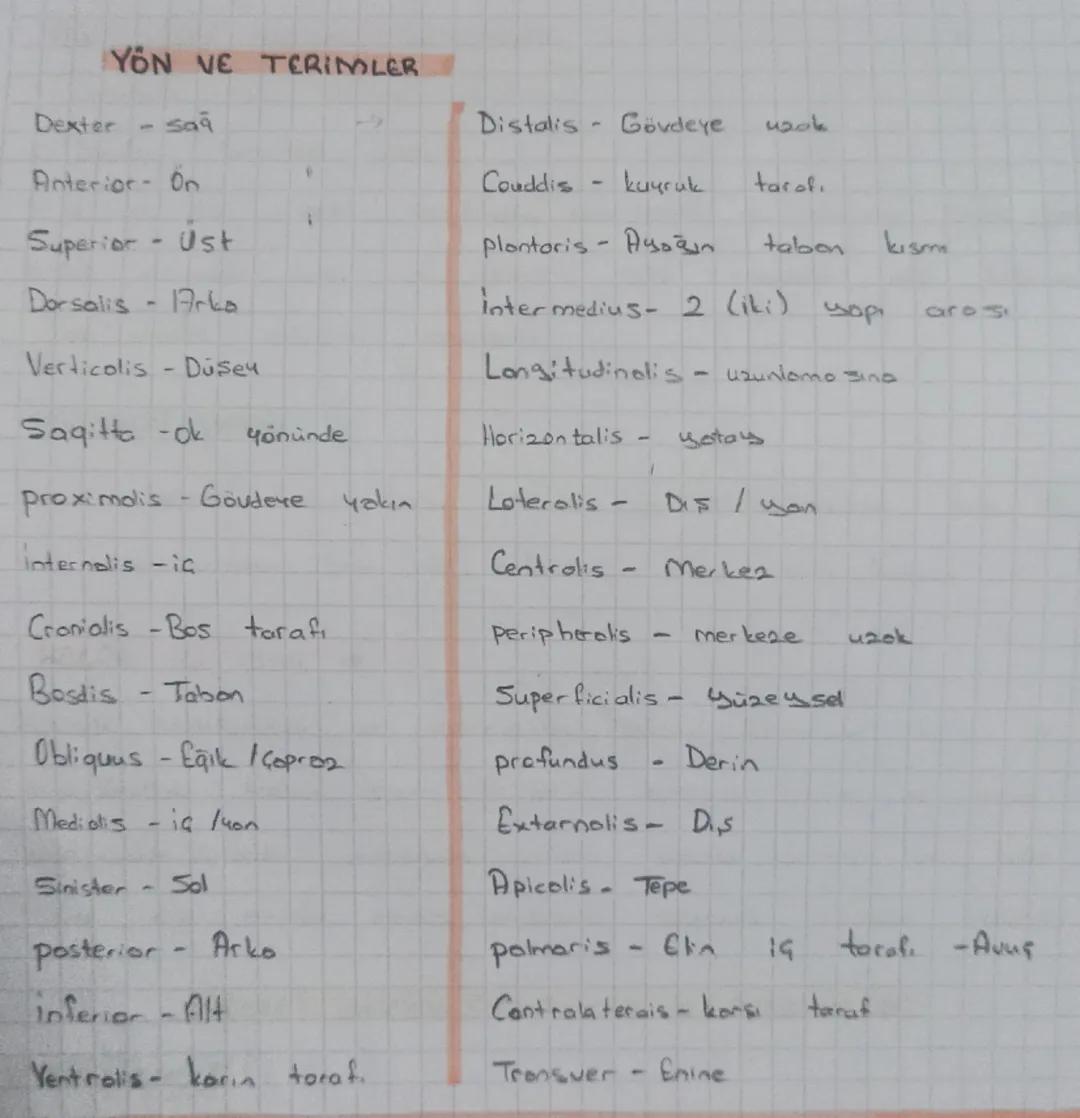 YÖN VE TERİMLER
Dexter - sağ
Anterior - Ön
Superior - Üst
Dorsalis - Arka
Verticalis - Düşey
Sagitta - ok yönünde
proximalis - Gövdeye yakın
internalis - iç
Cranialis - Baş tarafı
Basalis - Taban
Obliquus - Eğik / Çapraz
Medialis - iç / yan
Sinister - Sol
posterior - Arka
inferior - Alt
Ventralis - karın tarafı
Distalis - Gövdeye uzak
Caudalis - kuyruk tarafı
plantaris - Ayağın taban kısmı
intermedius - 2 (iki) yapı arası
Longitudinalis - uzunlamasına
Horizontalis - yatay
Lateralis - Dış / yan
Centralis - Merkez
peripheralis - merkeze uzak
Superficialis - yüzeysel
profundus - Derin
Extarnalis - Dış
Apicalis - Tepe
palmaris - Elin iç tarafı - Avuç
Contralaterais - karşı taraf
Transver - Enine